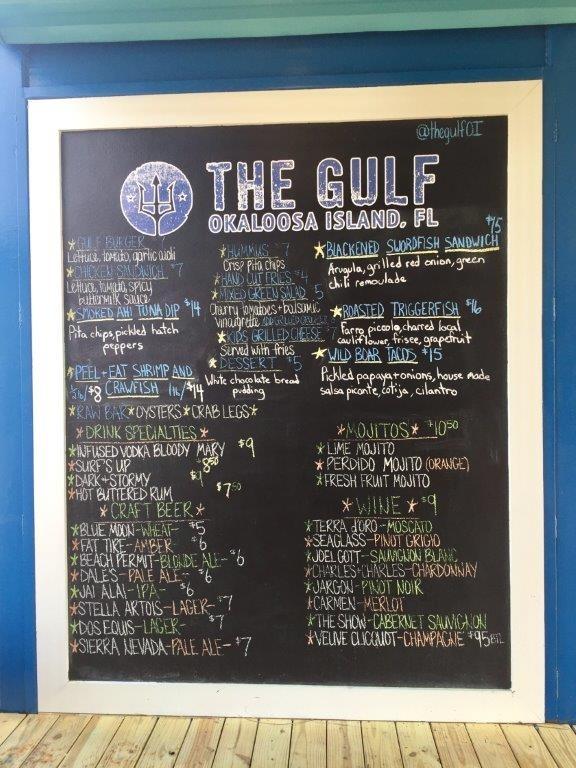 @thegulfOI
THE GULF
OKALOOSA ISLAND, FL
★GULF BURGER 7
Lettuce, tomato, garlic aioli
★CHICKEN SANDWICH $7
Lettuce, tomato, spicy
buttermilk sauce
★SMOKED AHI TUNA DIP $14
Pita chips, pickled hatch
peppers
★PEEL+EAT SHRIMP AND
CRAWFISH
1/2 lb/$8 1 lb/$14
★RAW BAR★OYSTERS★CRAB LEGS★
★HUMMUS $7
Crisp pita chips
★HAND CUT FRIES $4
★MIXED GREEN SALAD 5
Cherry tomatoes + balsamic
vinaigrette
★KIDS GRILLED CHEESE 7
Served with fries
★DESSERT $5
White chocolate bread
pudding
★BLACKENED SWORDFISH SANDWICH $15
Arugula, grilled red onion, green
chili remoulade
★ROASTED TRIGGERFISH $16
Farro piccolo, charred local
cauliflower, frisee, grapefruit
★WILD BOAR TACOS $15
Pickled papaya+onions, house made
salsa piconte, cotija, cilantro
★DRINK SPECIALTIES★
★INFUSED VODKA BLOODY MARY $9
★SURF'S UP $8.50
★DARK+STORMY $9
★HOT BUTTERED RUM $7.50
★CRAFT BEER★
★BLUE MOON-WHEAT- $5
★FAT TIRE-AMBER- $6
★BEACH PERMIT-BLONDE ALE- $6
★DALE'S-PALE ALE- $6
★JAI ALAI-IPA- $6
★STELLA ARTOIS-LAGER- $7
★DOS EQUIS-LAGER- $7
★SIERRA NEVADA-PALE ALE- $7
★MOJITOS★ $10.50
★LIME MOJITO
★PERDIDO MOJITO (ORANGE)
★FRESH FRUIT MOJITO
★WINE★ $9
★TERRA d'ORO-MOSCATO
★SEAGLASS-PINOT GRIGIO
★JOEL GOTT-SAUVIGNON BLANC
★CHARLES+CHARLES-CHARDONNAY
★JARGON-PINOT NOIR
★CARMEN-MERLOT
★THE SHOW-CABERNET SAUVIGNON
★VEUVE CLICQUOT-CHAMPAGNE $95 BTL